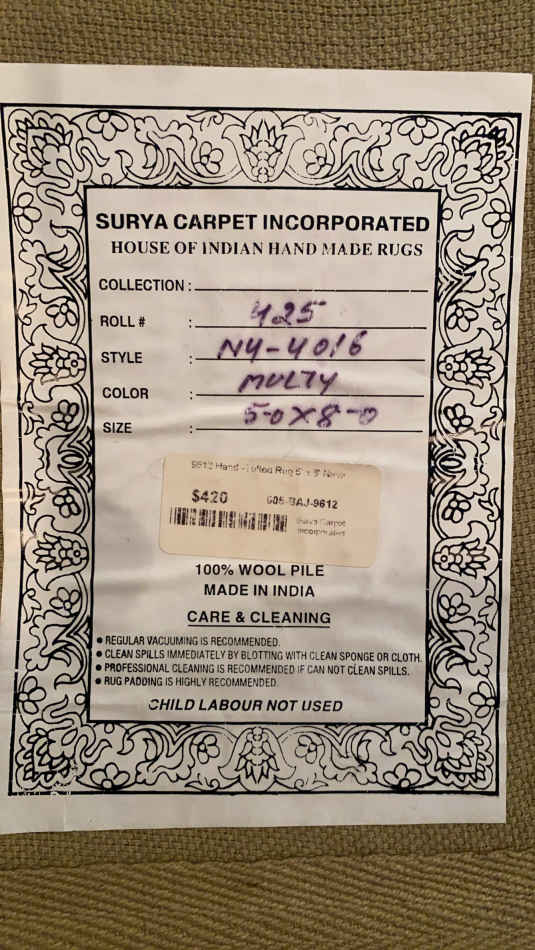 SURYA CARPET INCORPORATED
HOUSE OF INDIAN HAND MADE RUGS
COLLECTION :
ROLL # : 425
STYLE : NY-4016
COLOR : MULTY
SIZE : 5-0X8-0
9612 Hand-Tufted Rug 5 x 8
$420 605-BAJ-9612
Surya Carpet
Incorporated
100% WOOL PILE
MADE IN INDIA
CARE & CLEANING
● REGULAR VACUUMING IS RECOMMENDED.
● CLEAN SPILLS IMMEDIATELY BY BLOTTING WITH CLEAN SPONGE OR CLOTH.
● PROFESSIONAL CLEANING IS RECOMMENDED IF CAN NOT CLEAN SPILLS.
● RUG PADDING IS HIGHLY RECOMMENDED.
CHILD LABOUR NOT USED